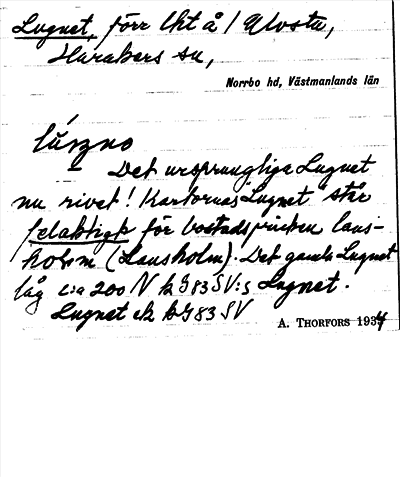 Lugnet, förr lht å / Ulvsta,
Harakers sn,
Norrbo hd, Västmanlands län
Det ursprungliga Lugnet
nu rivet! Kartornas "Lugnet" står
felaktigt för bostadspricken laus-
holm (Lausholm). Det gamla Lugnet
låg c:a 200 N k 983 SV:s Lugnet.
Lugnet ek k 983 SV
A. THORFORS 1934